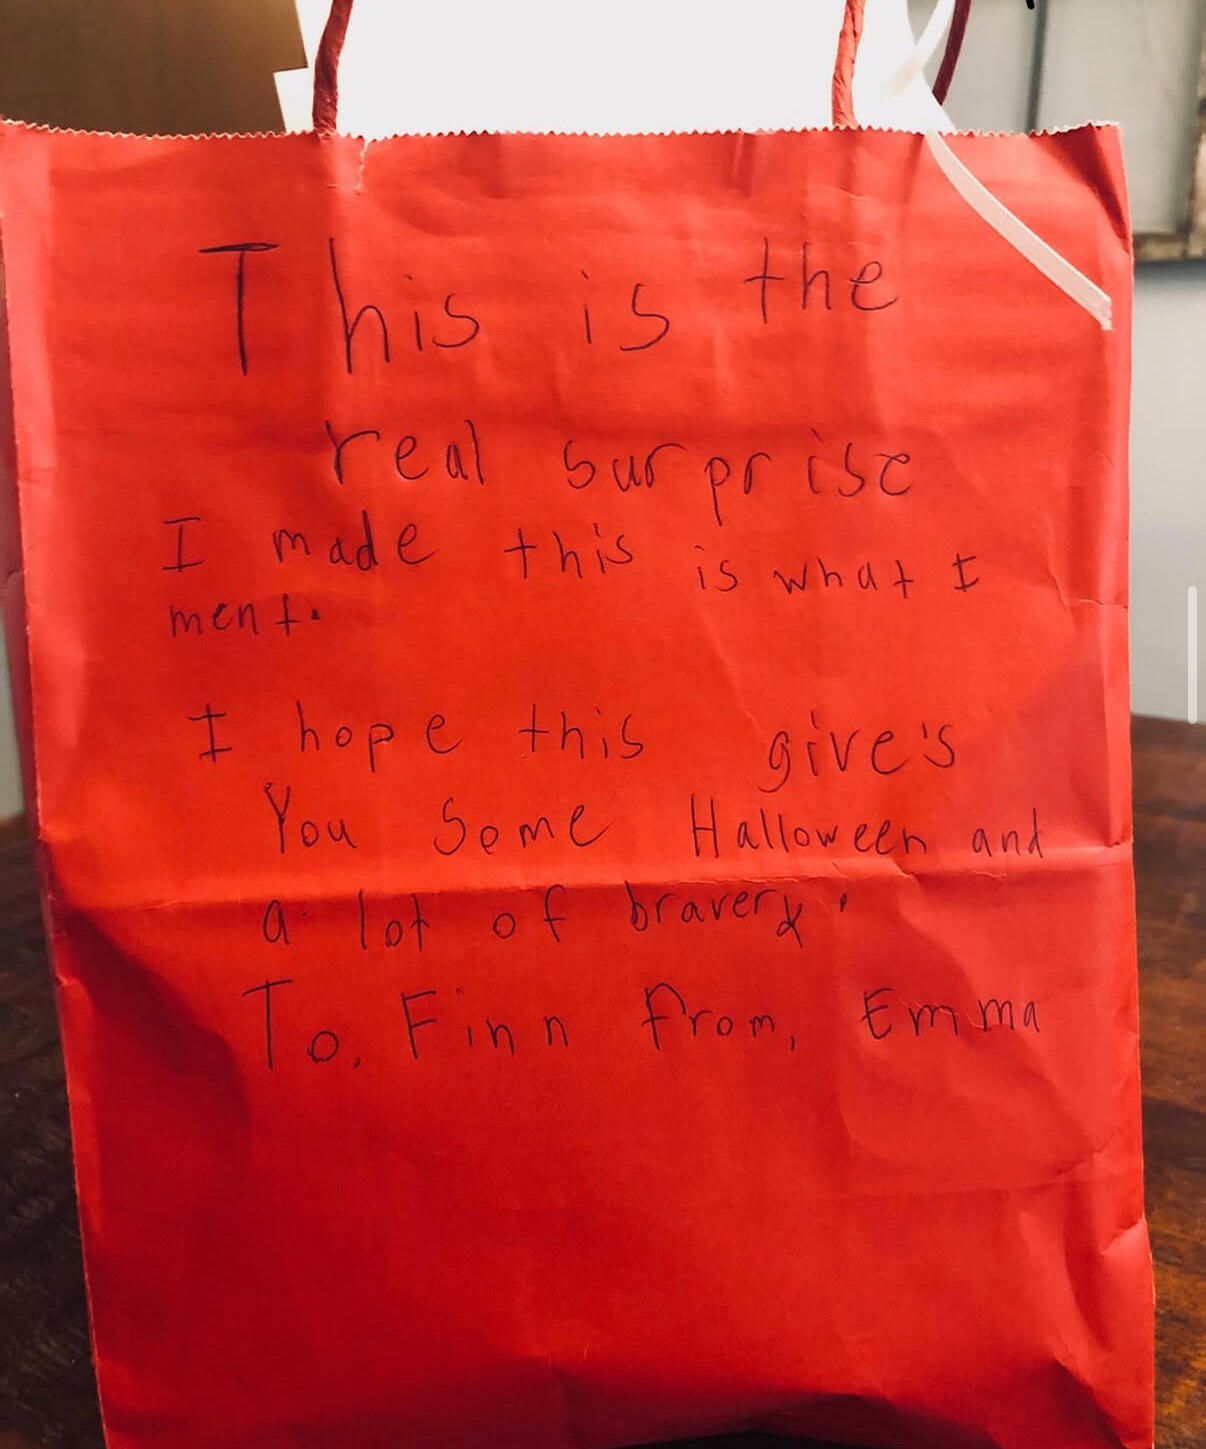 This is the
real surprise
I made this is what I
ment.
I hope this give's
You Some Halloween and
a lot of bravery.
To, Finn from, Emma